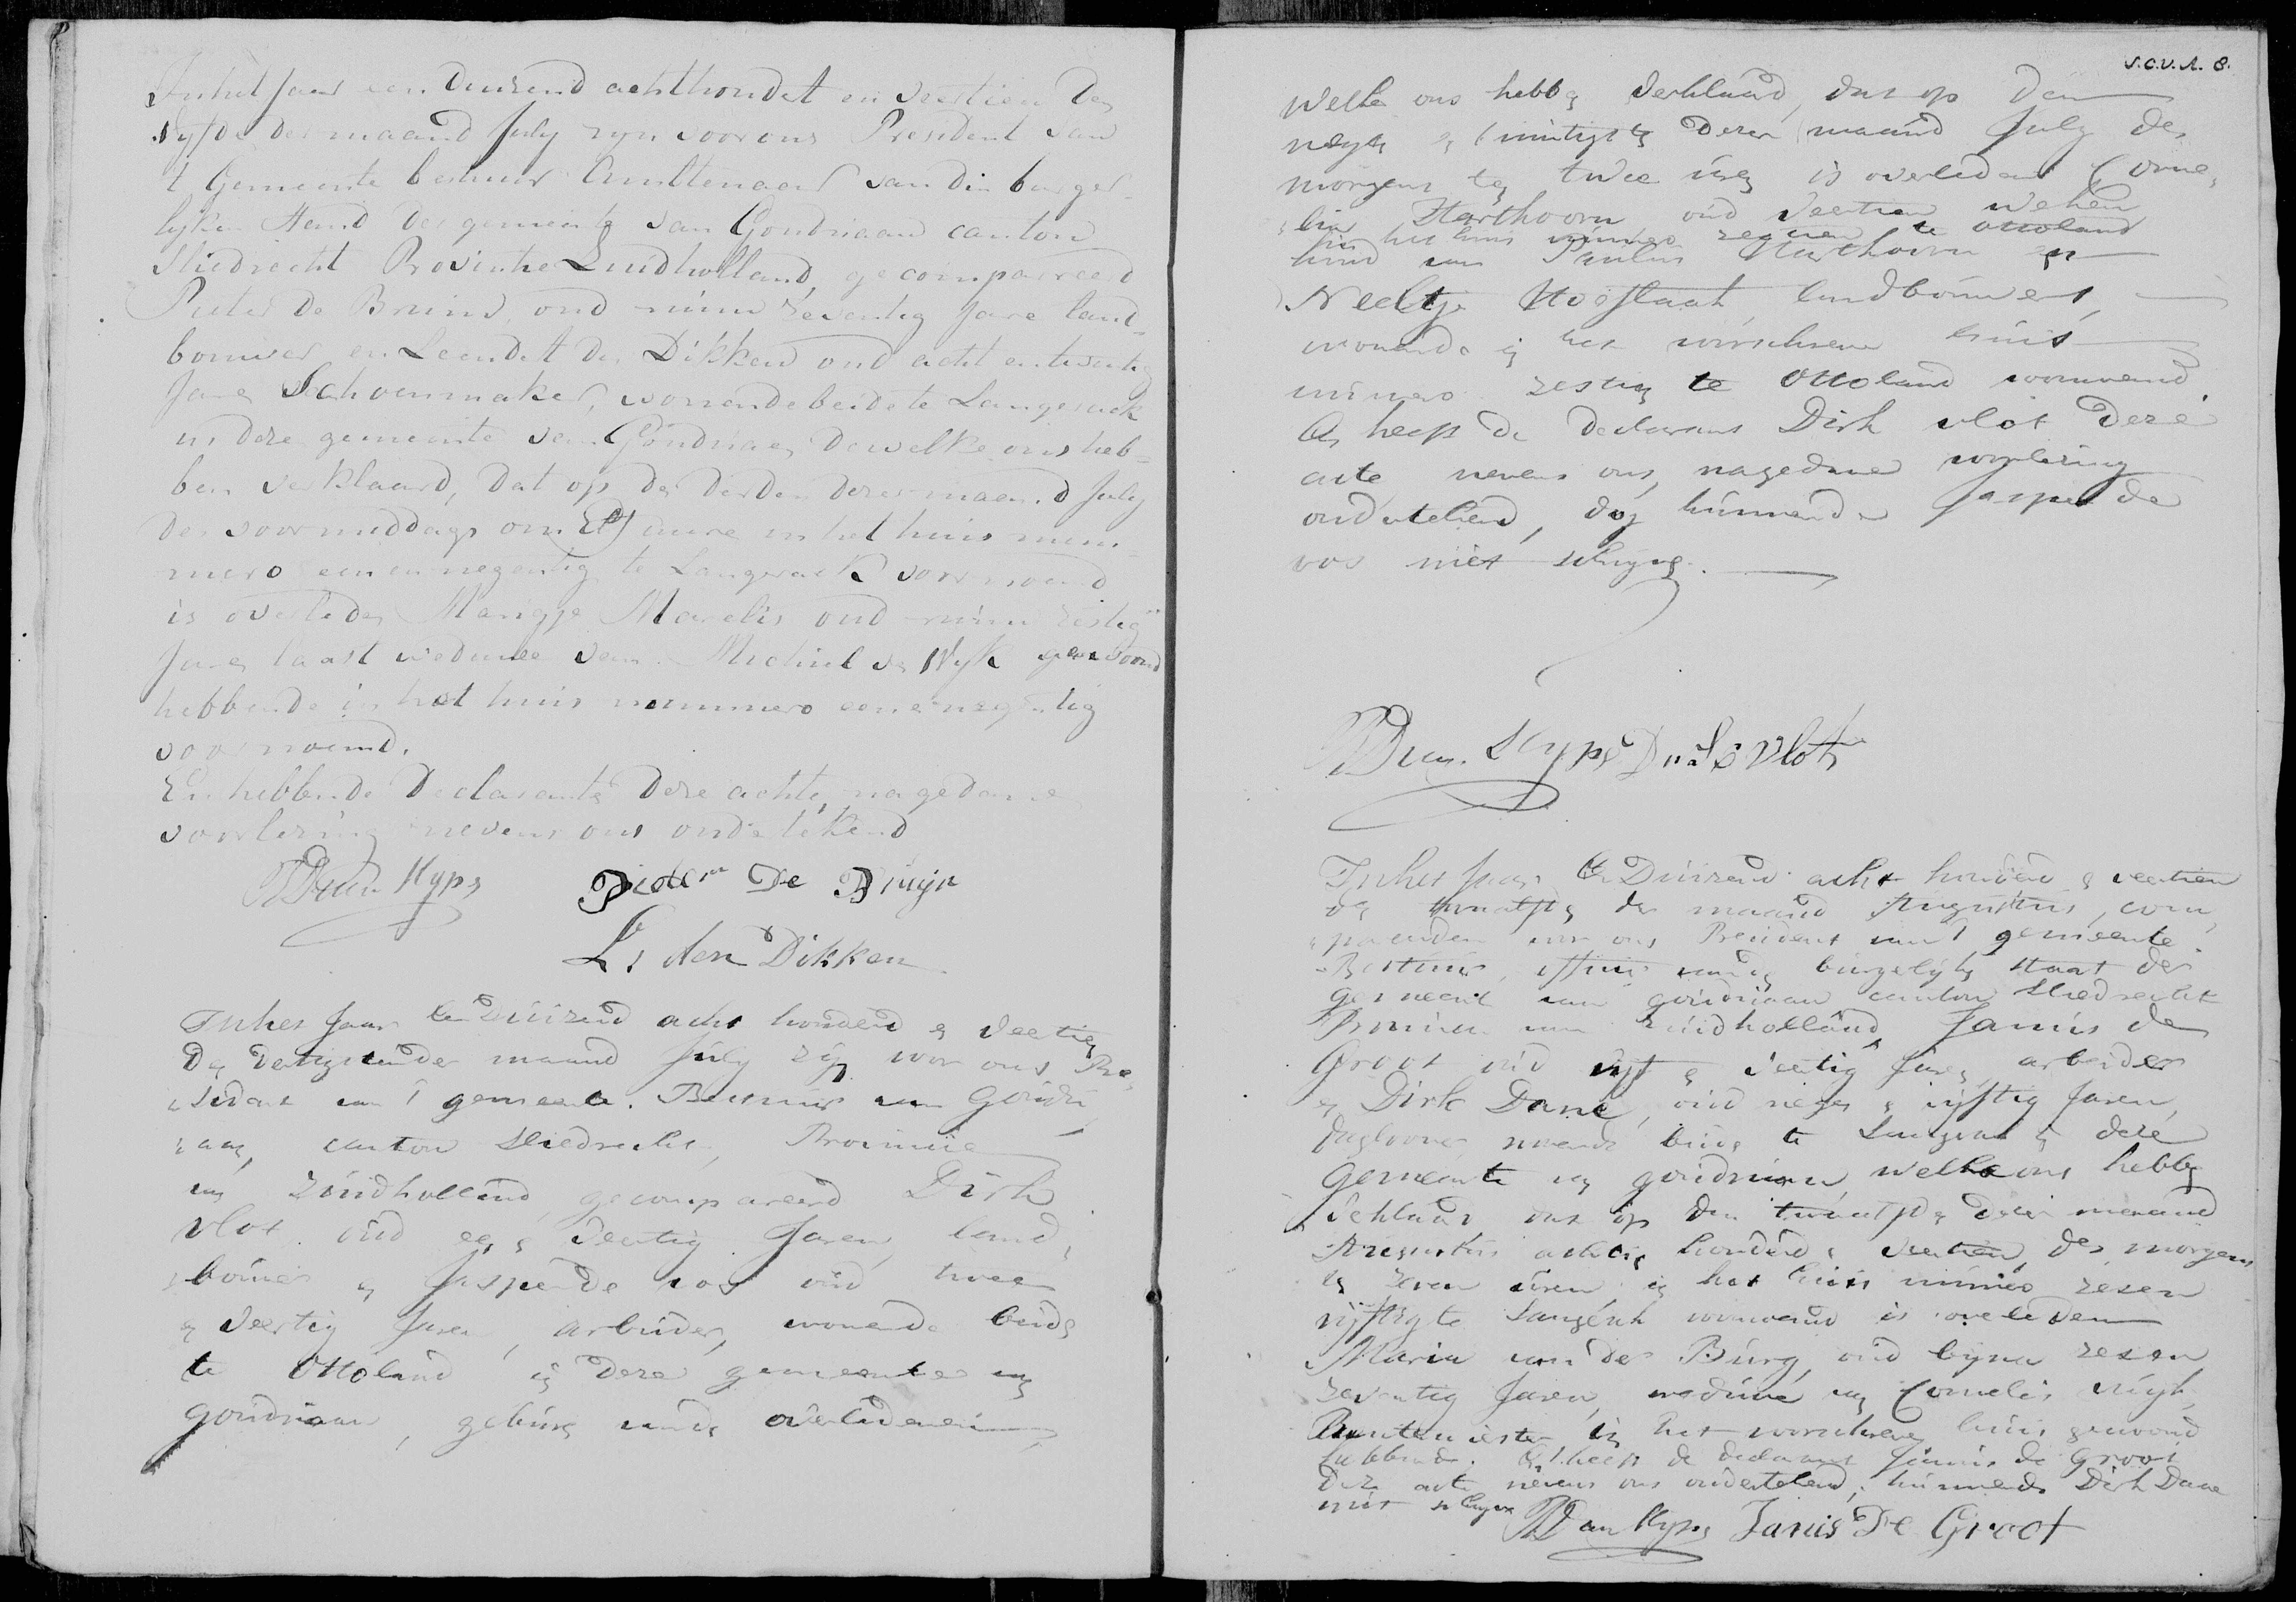 In het Jaar een Duizend achthondert en veertien Den
vyfde der maand July zyn voor ons President van
't Gemeente bestuur Amtenaar van din burger
lyken stand der gemeente van Goudriaan canton
Sliedrecht Provintie Zuidholland, gecompareerd
Pieter de Bruin, oud ruim zeventig Jare land-
bouwer en Leendert den Dikken oud acht en twentig
Jaren Schoenmaker, wonende beide te Langerack
in deze gemeente van Goudriaen dewelke ons heb-
ben verklaard, dat op de derden dezer maand July
des voormiddags om Elf uure in het huis num-
mero een en negentig te Langerack voornoemd
is overleden Marigje Marelis oud ruim zestig
Jaren laast weduwe van Michiel v Wyk gewoond
hebbende in het huis nummero een en negentig
voornoemd.
En hebbende Declarante deze achte, nagedane
voorlezing nevens ons ondertekend
Pieter De Bruijn
L: den Dikken
In het Jaar Een Duizend acht honderd en veertien
den dertigsten der maand July zijn voor ons Pre
sident van 't gemeente Bestuur van Goudri
aan, canton Sliedrecht, Provincie
van Zuidholland gecompareerd Dirk
Vlot oud een en veertig Jaren, land
bouwer en Jasper de vos oud twee
en veertig Jaren, arbeider, wonende beide
te Ottoland in deze gemeente van
goudriaan, geburen van de overledenen
S.C.V.A. 8.
welke ons hebben verklaard, dat op den
negen en twintigsten dezer maand July des
morgens ten twee uren is overleden Corne
lia Harthoorn oud veertien weken
in het huis nummer zestien te Ottoland
kind van Paulus Harthoorn en
Neeltje Hooflaak, landbouwers,
wonende in het voorschreven huis
numero zestig te Ottoland voornoemd.
En heeft de declarant Dirk vlot deze
acte nevens ons, nagedane voorlezing
ondertekend, dog kunnende Jasper de
vos niet schryven.
Dirk Vlot
In het Jaar Een Duizend acht honderd en veertien
den twaalfden der maand Augustus, com
pareerden voor ons President van 't gemeente
Bestuur, officier van den burgelyken staat der
gemeente van goudriaan canton Sliedrecht
Provincie van Zuidholland, Janus de
Groot oud vyf en veertig Jaren, arbeider
en Dirk Dane, oud negen en vyftig Jaren,
daglooner wonende beide te Langerak in deze
gemeente van goudriaan welke ons hebben
verklaard dat op den twaalfden dezer maand
Augustus achtien honderd en veertien, des morgens
ten zeven uren in het huis numero zesen
vyftig te Langerak voornoemd is overleden
Maria van der Burg, oud byna zesen
zeventig Jaren, weduwe van Cornelis
in het voorschreven huis gewoond
hebbende. En heeft de declarant Janus de Groot
deze acte nevens ons ondertekend, kunnende Dirk Dane
niet schryven
Janus De Groot